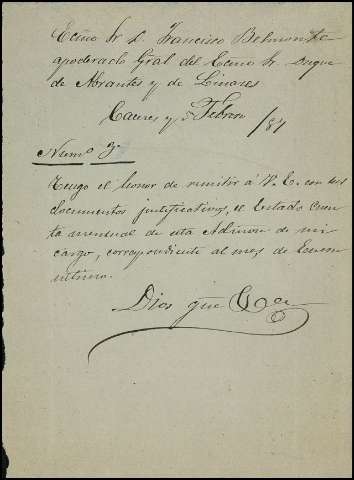 Ecmo Sr D. Francisco Belmonte
apoderado Gral del Ecmo Sr Duque
de Abrantes y de Linares
Caceres y 5 Febrero /81
Numo 3o
Tengo el honor de remitir á V. E. con sus
documentos justificativos, el Estado cuen
ta mensual de esta Admon de mi
cargo, correspondiente al mes de Enero
ultimo.
Dios gue